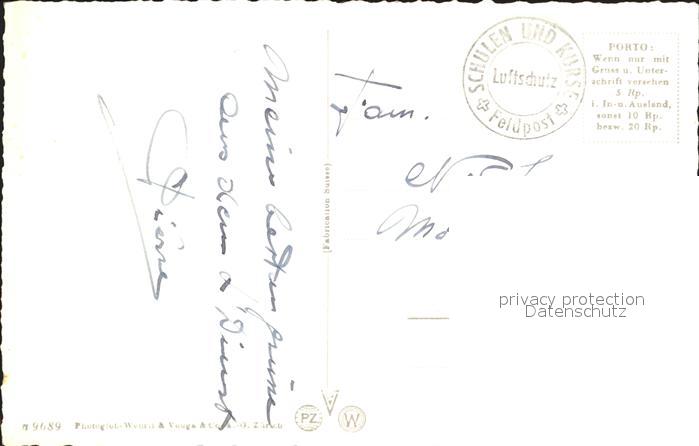 Meine besten Grüsse
aus dem Dienst
Pierre
Fam.
SCHULEN UND KURSE
Luftschutz
Feldpost
PORTO:
Wenn nur mit
Gruss u. Unter-
schrift versehen
5 Rp.
i. In- u. Ausland,
sonst 10 Rp.
bezw. 20 Rp.
(Fabrication Suisse)
privacy protection
Datenschutz
9689 Photoglob-Wehrli & Vouga & Co. A.-G. Zürich
PZ
W